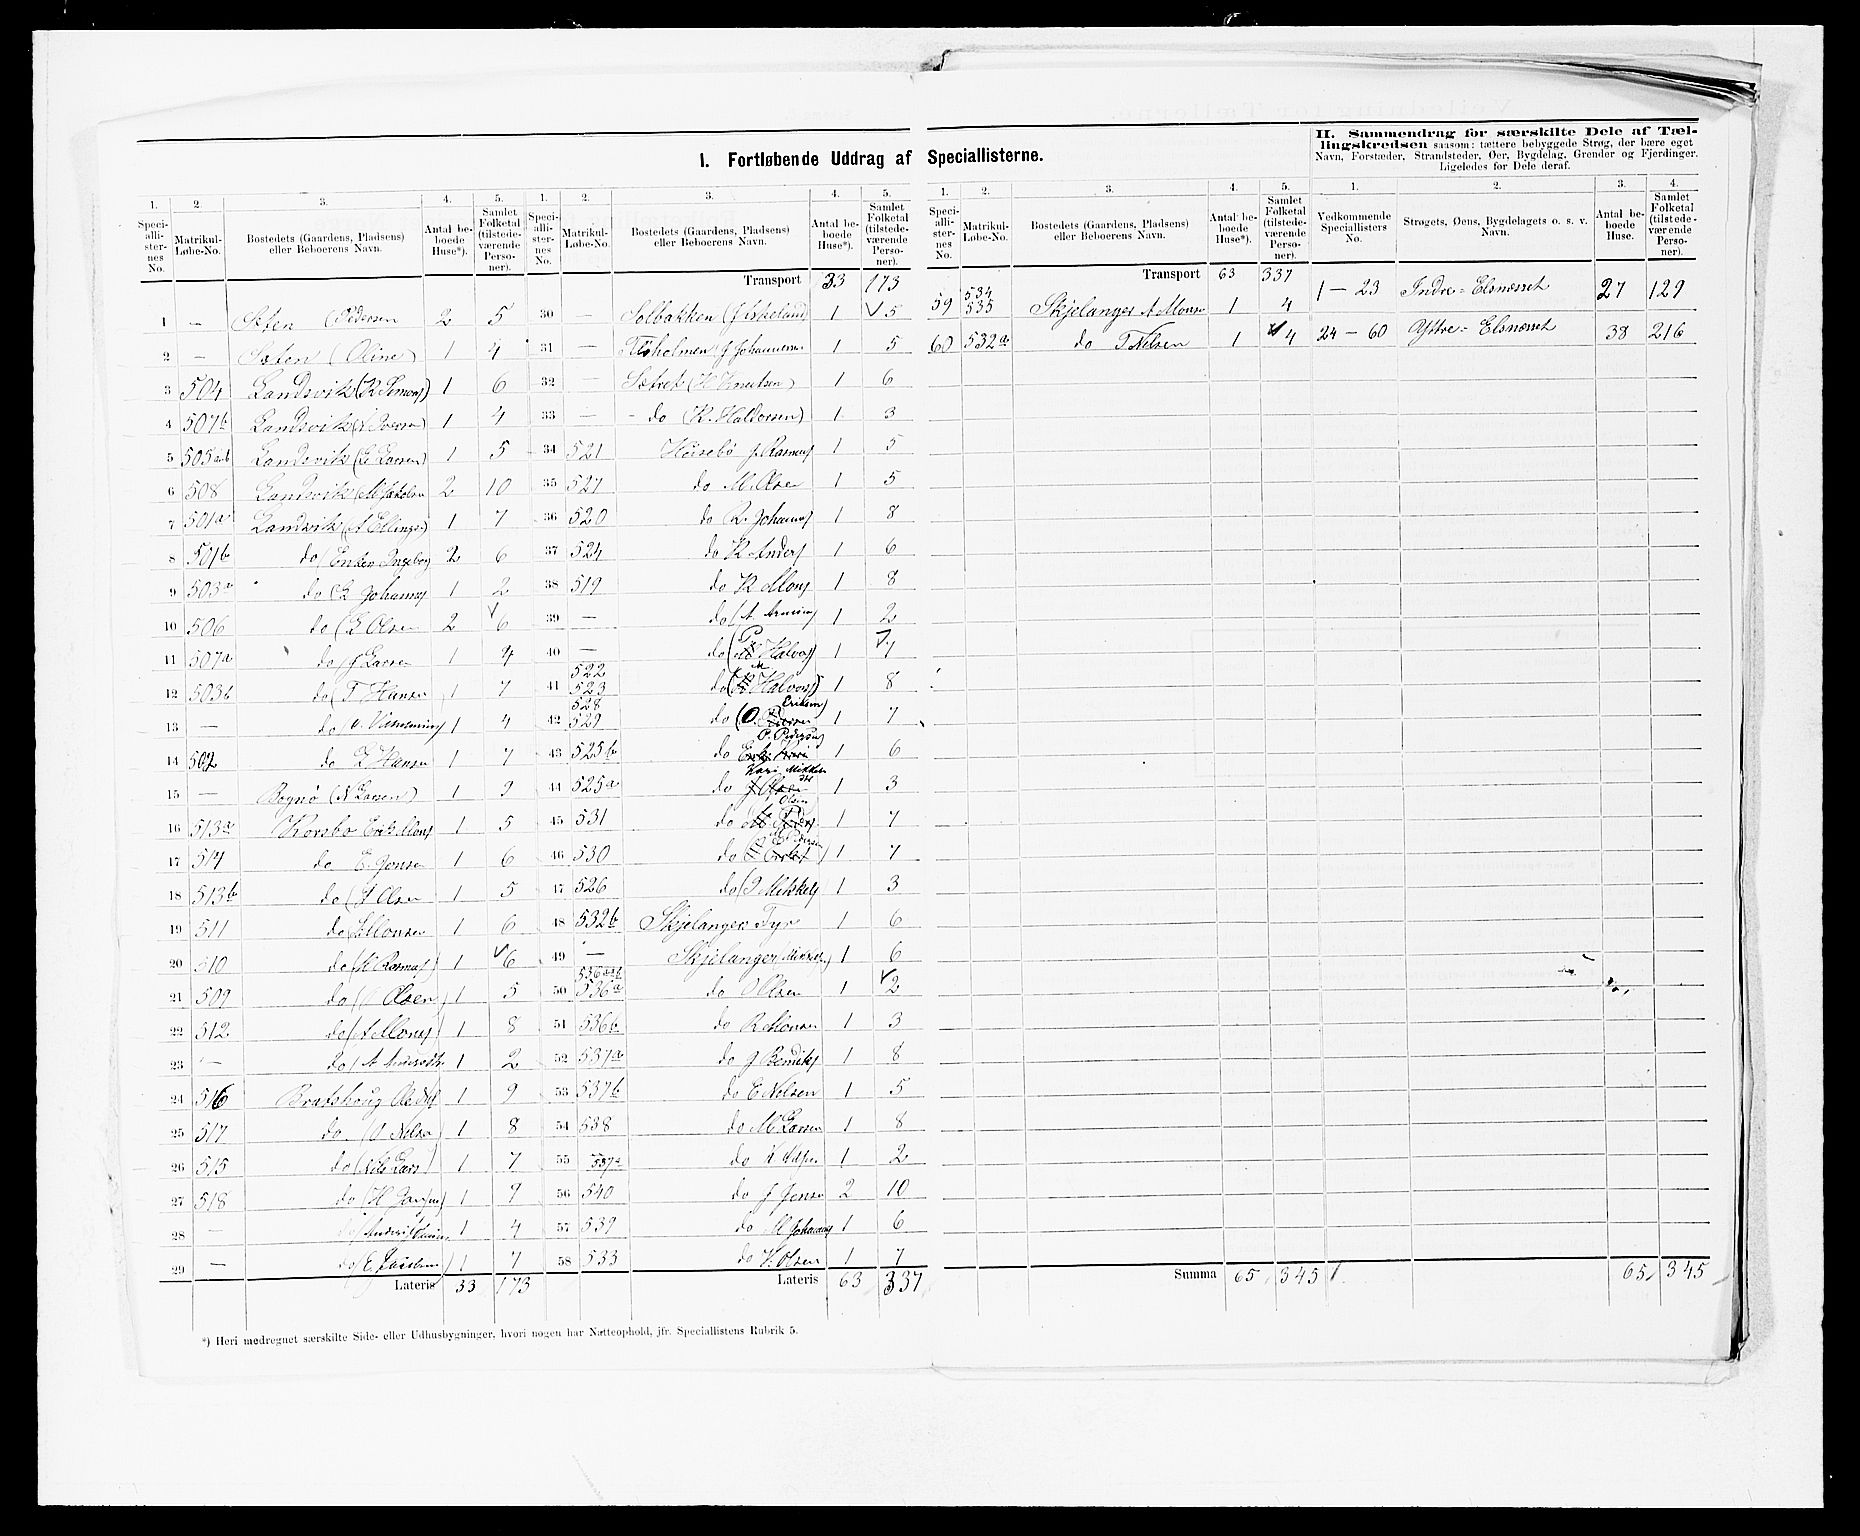 I. Fortløbende Uddrag af Speciallisterne.
II. Sammendrag for særskilte Dele af Tællingskredsen saasom: tættere bebyggede Strøg, der bære eget
Navn, Forstæder, Strandsteder, Øer, Bygdelag, Grender og Fjerdinger.
Ligeledes for Dele deraf.
1. 2. 3. 4. 5.
Speciallisternes No. Matrikul-Løbe-No. Bostedets (Gaardens, Pladsens) eller Beboerens Navn. Antal beboede Huse*). Samlet Folketal (tilstedeværende Personer).
1 — Sæten (Pedersen 2 5
2 — Sæten (Oline) 1 4
3 504 Landsvik (R Simons) 1 6
4 507b Landsvik ( Iversen) 1 4
5 505a&b Landsvik (E Larsen) 1 5
6 508 Landsvik (M Jakobsen 2 10
7 501a Landsvik (A Ellings) 1 7
8 501b do (Enken Ingeborg 2 6
9 503a do (L Johannes 1 2
10 506 do (E Olsen 2 6
11 507a do (J Larsen 1 4
12 503b do (T Hansen 1 7
13 — do 1 4
14 502 do L Hansen 1 7
15 — Bognø (N Larsen) 1 9
16 513a Korsbø Erik Mons 1 5
17 514 do E. Jonsen 1 6
18 513b do (A Olsen 1 5
19 511 do Monsen 1 6
20 510 do (K Rasmus) 1 6
21 509 do ( Olsen 1 5
22 512 do (A Mons) 1 8
23 — do (A Andersdtr 1 2
24 516 Bratshoug Ole 1 9
25 517 do (O Nelsen 1 8
26 515 do (Nils Lars) 1 7
27 518 do (H 1 9
28 — do (Anders 1 4
29 — do (E. Jacobsen) 1 7
Lateris 33 173
1. 2. 3. 4. 5.
Speciallisternes No. Matrikul-Løbe-No. Bostedets (Gaardens, Pladsens) eller Beboerens Navn. Antal beboede Huse*). Samlet Folketal (tilstedeværende Personer).
Transport 33 173
30 — Solbakken (J 1 5
31 — J Johannesen 1 5
32 — Sætret (H Knutsen) 1 6
33 — - do (K. Haldorsen) 1 3
34 521 Høisebø J. Rasmus 1 5
35 527 do M. Olsen 1 5
36 520 do R. Johannes 1 8
37 524 do K Anders 1 6
38 519 do K Mons 1 8
39 — do (A. 1 2
40 — do (P Halvors) 1 7
41 522 523 do (M Halvors) 1 8
42 528 529 do (O. Eriksen) 1 7
43 525b do P. Pedersen 1 6
44 525a do Kari Mikkels 1 3
45 531 do Olsen 1 7
46 530 do Pedersen 1 7
47 526 do (J Mikkels 1 3
48 532b Skjelanger Fyr 1 6
49 — Skjelanger Mikkels) 1 6
50 536a do O Olsen 1 2
51 536b do R Monsen 1 3
52 537a do J Bendiks 1 8
53 537b do E Nelsen 1 5
54 538 do M Larsen 1 8
55 537a do 1 2
56 540 do J Jensen 2 10
57 539 do M Johannes 1 6
58 533 do K. Olsen 1 7
Lateris 63 337
1. 2. 3. 4. 5.
Speciallisternes No. Matrikul-Løbe-No. Bostedets (Gaardens, Pladsens) eller Beboerens Navn. Antal beboede Huse*). Samlet Folketal (tilstedeværende Personer).
Transport 63 337
59 534 535 Skjelanger A Monsen 1 4
60 532a do T Nelsen 1 4
Summa 65 345
1. 2. 3. 4.
Vedkommende Speciallisters No. Strøgets, Øens, Bygdelagets o. s. v. Navn. Antal beboede Huse. Samlet Folketal (tilstedeværende Personer).
1 — 23 Indre - Elsnæsset 27 129
24 — 60 Ytre - Elsnæsset 38 216
65 345
*) Heri medregnet særskilte Side- eller Udhusbygninger, hvori nogen har Natteophold, jfr. Speciallistens Rubrik 5.